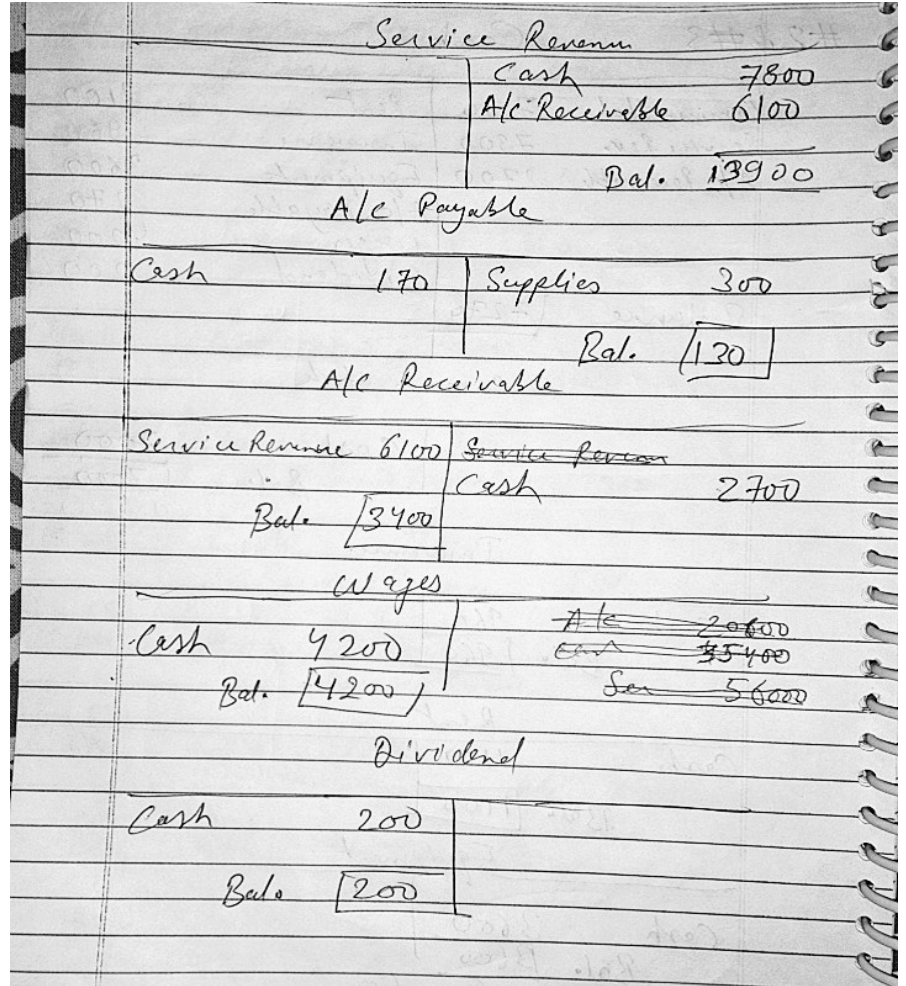 Service Revenue
Cash 7800
A/c Receivable 6100
Bal. 13900
A/c Payable
Cash 170 Supplies 300
Bal. 130
A/c Receivable
Service Revenue 6100 Service Revenu
Cash 2700
Bal. 3400
Wages
A/c 20600
Cash 4200 Cash 35400
Bal. 4200 Ser 56000
Dividend
Cash 200
Bal. 200